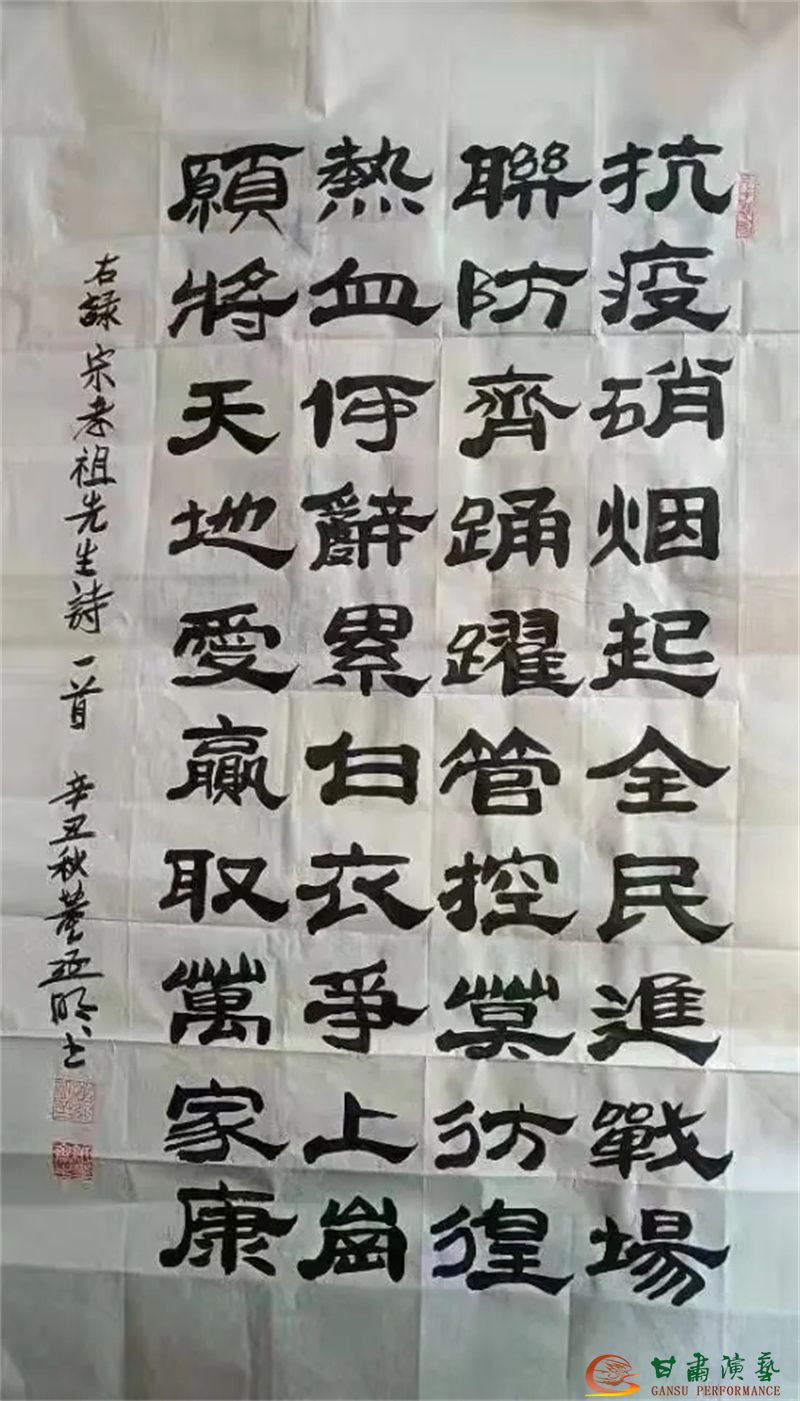 抗疫硝烟起全民進戰場
聯防齊踊躍管控莫彷徨
熱血何辭累白衣爭上崗
願將天地愛贏取萬家康
右録宗孝祖先生詩一首 辛丑秋董亚明书
甘肃演藝
GANSU PERFORMANCE